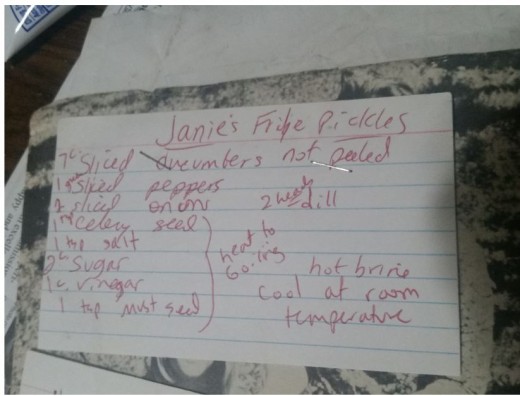 Janie's Fridge Pickles
7c sliced cucumbers not peeled
1 sliced peppers
2 sliced onions 2 heads dill
1 Celery seed
1 tsp salt
2c Sugar
1c. vinegar
1 tsp must seed
heat to
boiling
hot brine
Cool at room
temperature